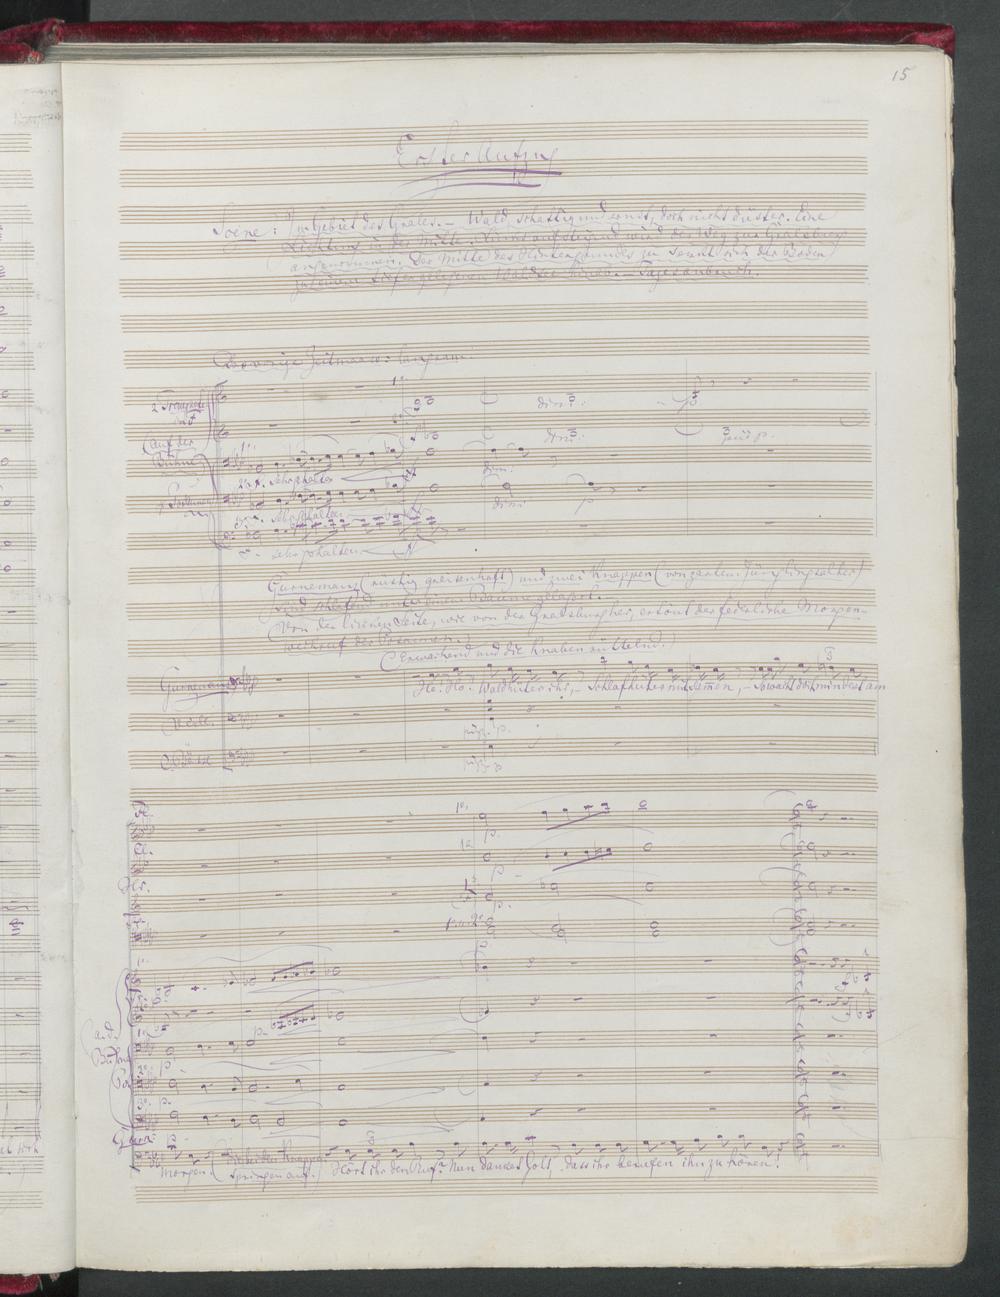 15
Erster Aufzug
Scene: Im Gebiet des Grales. — Wald, schattig und ernst, doch nicht düster. Eine
Lichtung in der Mitte. Links aufsteigend wird der Weg zur Gralsburg
angenommen. Der Mitte des Hintergrundes zu senkt sich der Boden
zu einem tiefer gelegenen Waldsee hinab. — Tagesanbruch.
Das vorige Zeitmaass: langsam.
2 Trompeten
in F
(auf der
Bühne)
Posaunen
dim.
dim.
più p.
sehr gehalten
dim.
sehr gehalten
dim. p
sehr gehalten
Gurnemanz (rüstig greisenhaft) und zwei Knappen (von zartem Jünglingsalter)
sind schlafend unter einem Baume gelagert. —
(Von der linken Seite, wie von der Gralsburg her, ertönt der feierliche Morgen-
weckruf der Posaunen.)
(Erwachend und die Knaben rüttelnd.)
Gurnemanz
He! Ho! Waldhüter ihr, — Schlafhüter mitsammen, — so wacht doch mindest am
Vcelli.
pizz. p.
C. Bässe
pizz. p
1º. p.
Cl.
1º. p
Hr.
p.
1º u. 2º
p.
a. d.
Bühne
Pos.
p.
p.
p.
Gurn:
Morgen. (Die beiden Knappen
springen auf.) Hört ihr den Ruf? Nun danket Gott, dass ihr berufen ihn zu hören!